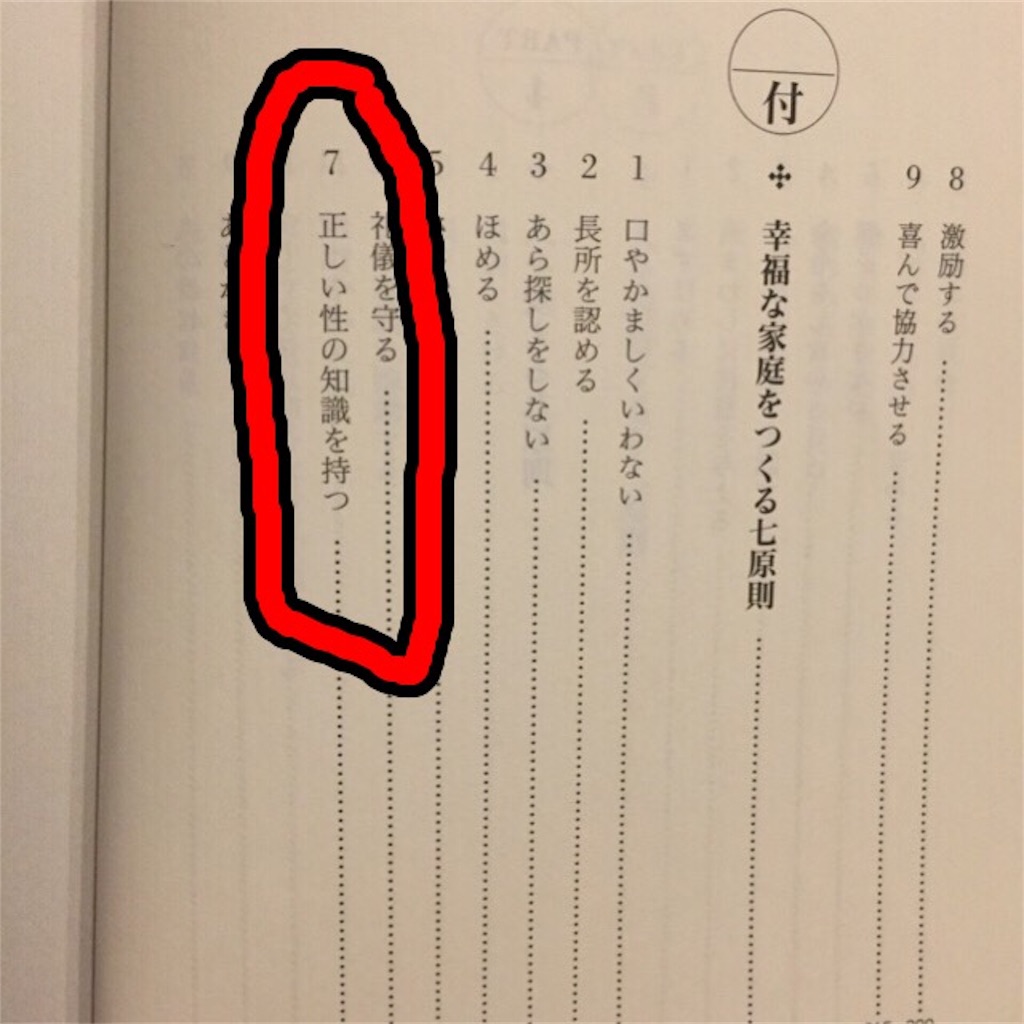 8 激励する
9 喜んで協力させる
付
✣ 幸福な家庭をつくる七原則
1 口やかましくいわない
2 長所を認める
3 あら探しをしない
4 ほめる
5
礼儀を守る
7 正しい性の知識を持つ